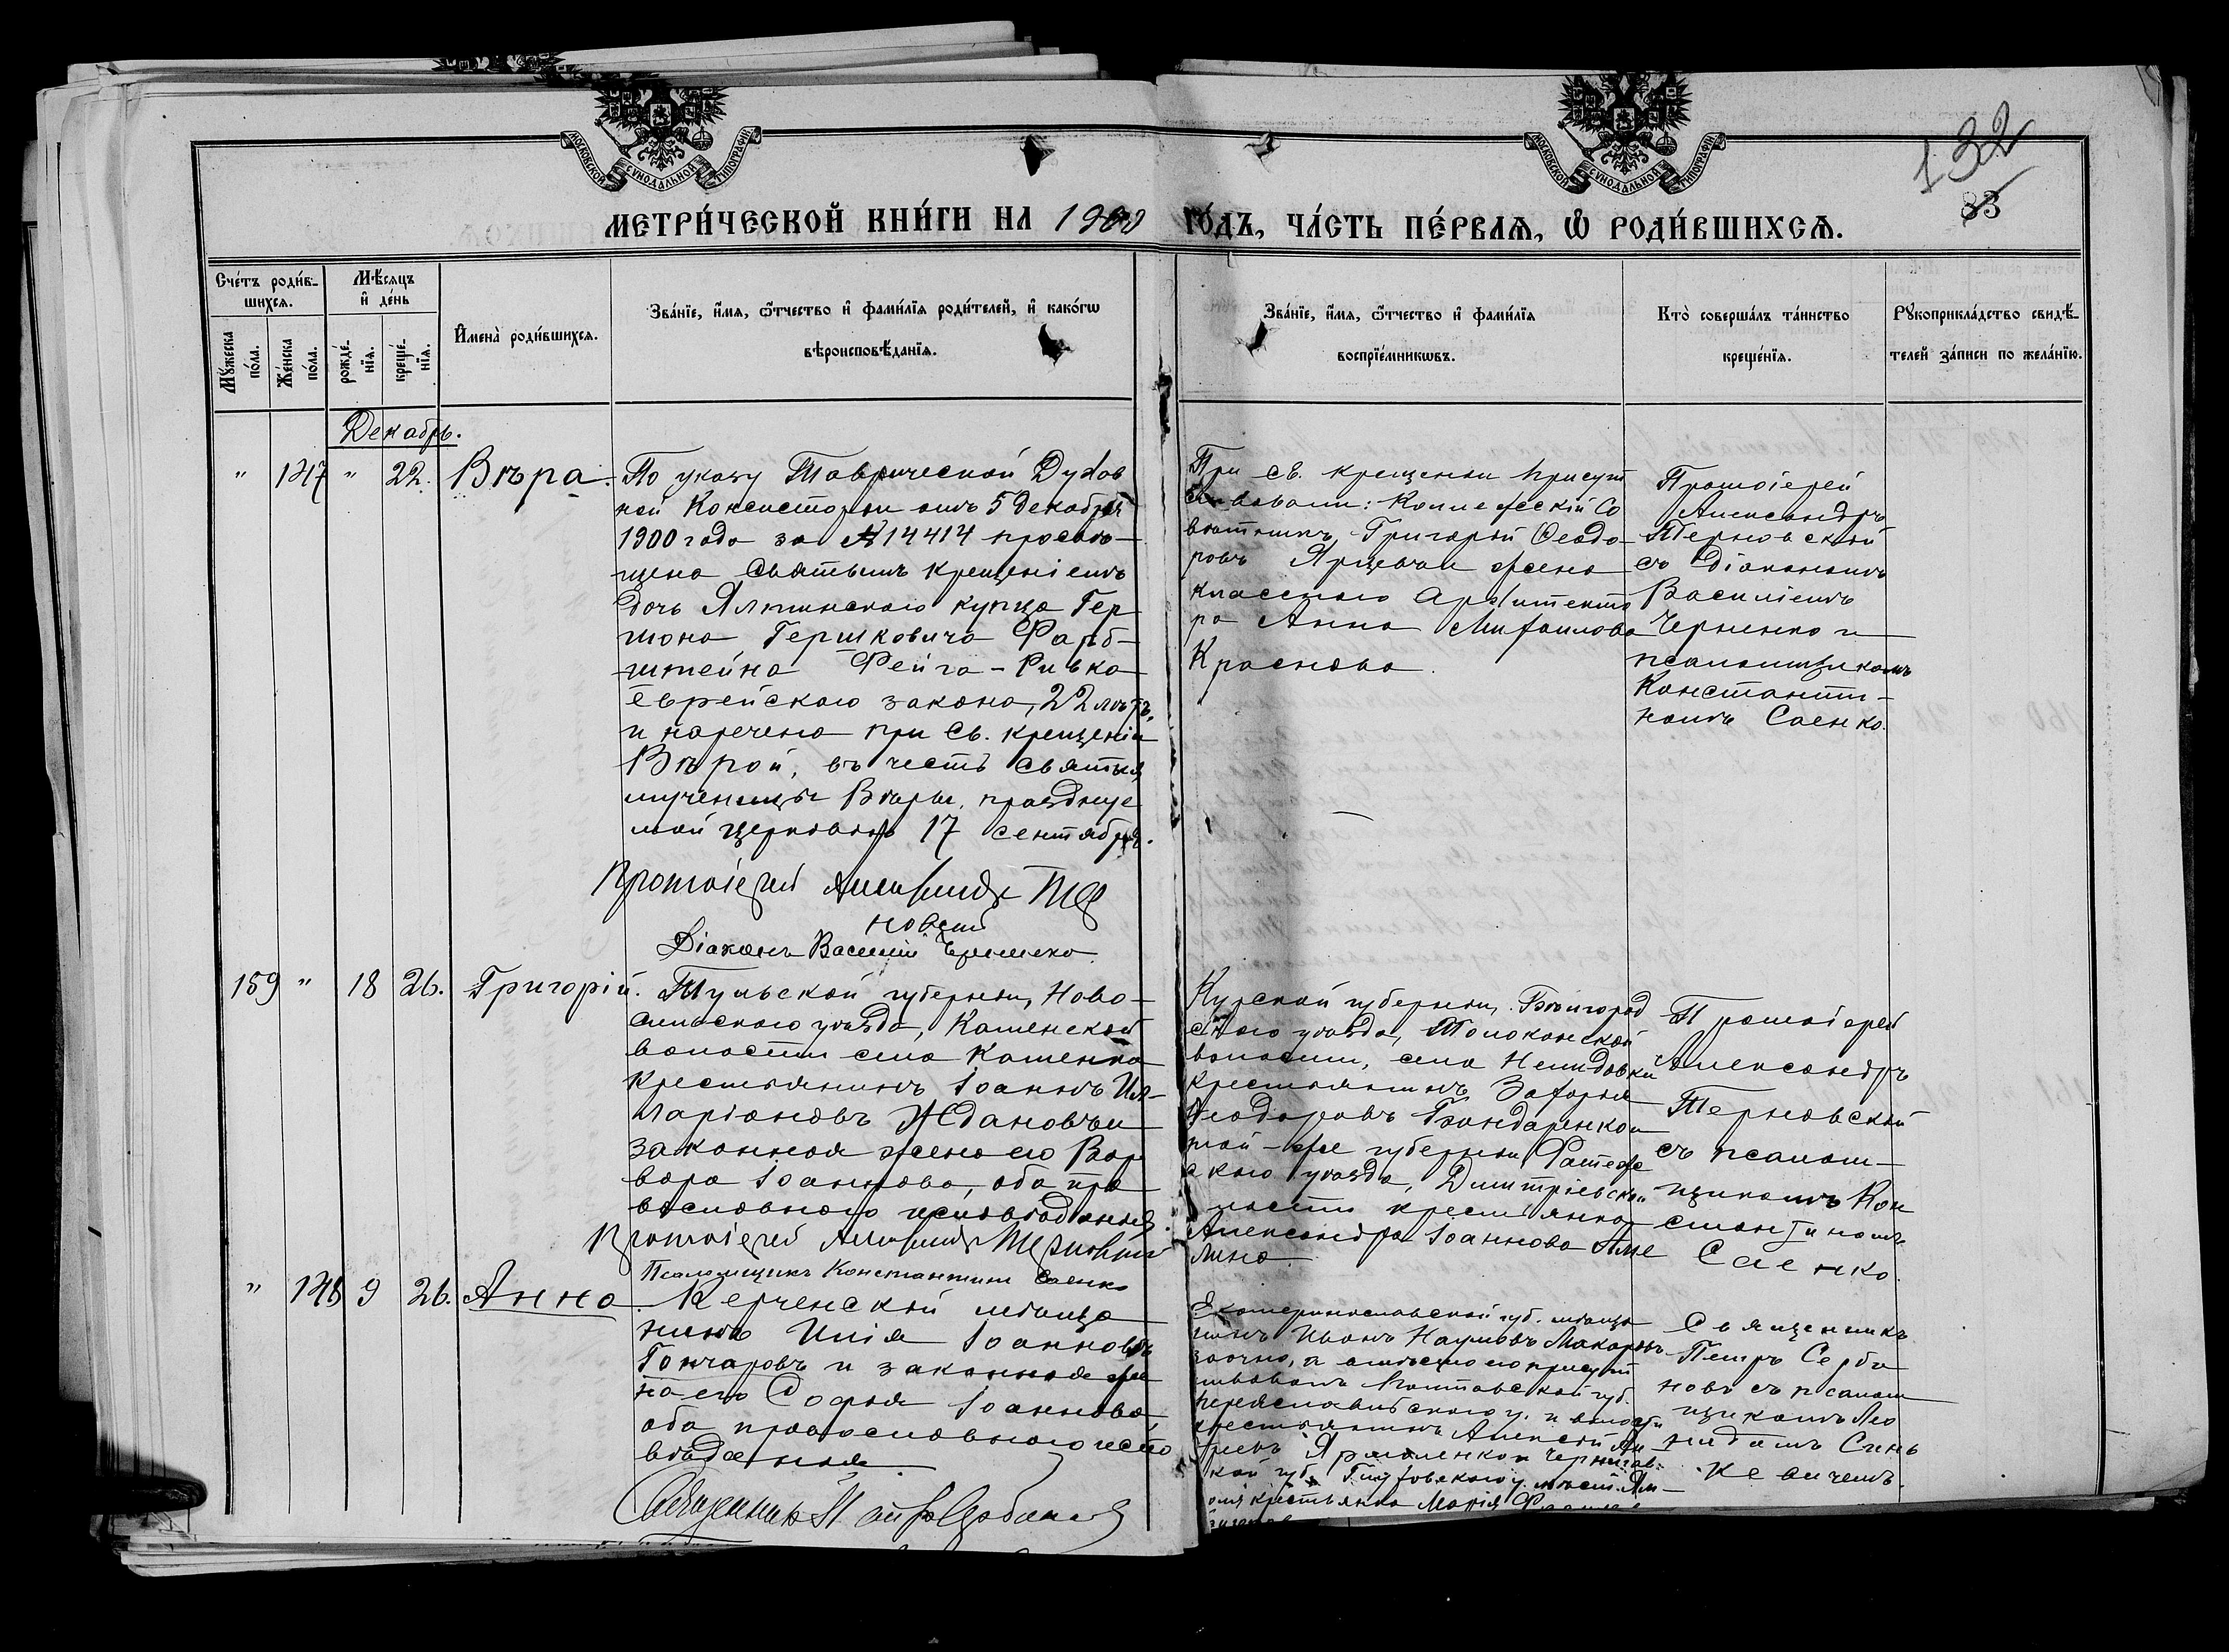 МОСКОВСКОЙ СѴНОДАЛЬНОЙ ТИПОГРАФІИ
МОСКОВСКОЙ СѴНОДАЛЬНОЙ ТИПОГРАФІИ
132
83
МЕТРИ́ЧЕСКОЙ КНИ́ГИ НА 1900 ГО́ДЪ, ЧА́СТЬ ПЕ́РВАЯ, Ѡ РОДИ́ВШИХСЯ.
Сче́тъ роди́в-
шихся.
Му́жеска
по́ла.
Же́нска
по́ла.
Мѣ́сяцъ
и де́нь
рожде́-
нїя.
креще́-
нїя.
Имена̀ роди́вшихся.
Зва́нїе, и́мя, ѿтчество и фами́лїя роди́телей, и како́гѡ
вѣроисповѣ́данїя.
Зва́нїе, и́мя, ѿтчество и фами́лїя
воспрїе́мникѡвъ.
Кто̀ соверша́лъ та́инство
креще́нїя.
Рꙋкоприкла́дство свидѣ́-
телей за́писи по жела́нїю.
Декабрь.
" 147 " 22. Вѣра.
По указу Таврической Духов
ной Консисторіи отъ 5 декабря
1900 года за № 14414 просвѣ-
щена Святымъ крещеніемъ
дочь Ялтинскаго купца Гер
шона Гершковича Фарб-
штейна Фейга-Ривка
еврейскаго закона, 22 лѣтъ,
и наречена при Св. крещеніи
Вѣрой, въ честь святыя
мученицы Вѣры, празднуе
мой церковью 17 сентября.
Протоіерей Александръ Тер
новскій
Діаконъ Василій Черненко
При св. крещеніи присут
ствовали: Коллежскій Со
вѣтникъ Григорій Ѳеодо
ровъ Ярцевъ и жена
класснаго архитекто
ра Анна Михаилова
Краснова.
Протоіерей
Александръ
Терновскій
съ діакономъ
Василіемъ
Черненко и
псаломщикомъ
Константи-
номъ Саенко.
159 " 18 26. Григорій.
Тульской губерніи, Ново-
сильскаго уѣзда, Каменской
волости села Каменка
крестьянинъ Іоаннъ Ил-
ларіоновъ Ждановъ и
законная жена его Вар
вара Іоаннова, оба пра
вославнаго исповѣданія.
Протоіерей Александръ Терновскій
Псаломщикъ Константинъ Саенко
Курской губерніи, Бѣлгород
скаго уѣзда, Толоконской
волости, села Нелидовки
крестьянинъ Захарія
Ѳеодоровъ Бондаренко и
той-же губерніи Фатеж
скаго уѣзда, Димитріевской
волости крестьянка
Александра Іоаннова
Протоіерей
Александръ
Терновскій
съ псалом-
щикомъ Кон
стантиномъ
Саенко.
" 148 9 26. Анна.
Керченскій мѣща
нинъ Илія Іоанновъ
Гончаровъ и законная же
на его Софія Іоаннова,
оба православнаго испо
вѣданія.
Священникъ Петръ Сербиновъ
Екатеринославской губ. мѣща
нинъ Иванъ Наумовъ Макаровъ
заочно, а вмѣсто его присут
ствовалъ Полтавской губ.
Переяславльскаго у. и волости
крестьянинъ Алексѣй
Ярмоленко и Чернигов
ской губ. Глуховскаго у.
крестьянка Марія
Священникъ
Петръ Серби
новъ съ псалом
щикомъ Лео
нидомъ Синь
кевичемъ.